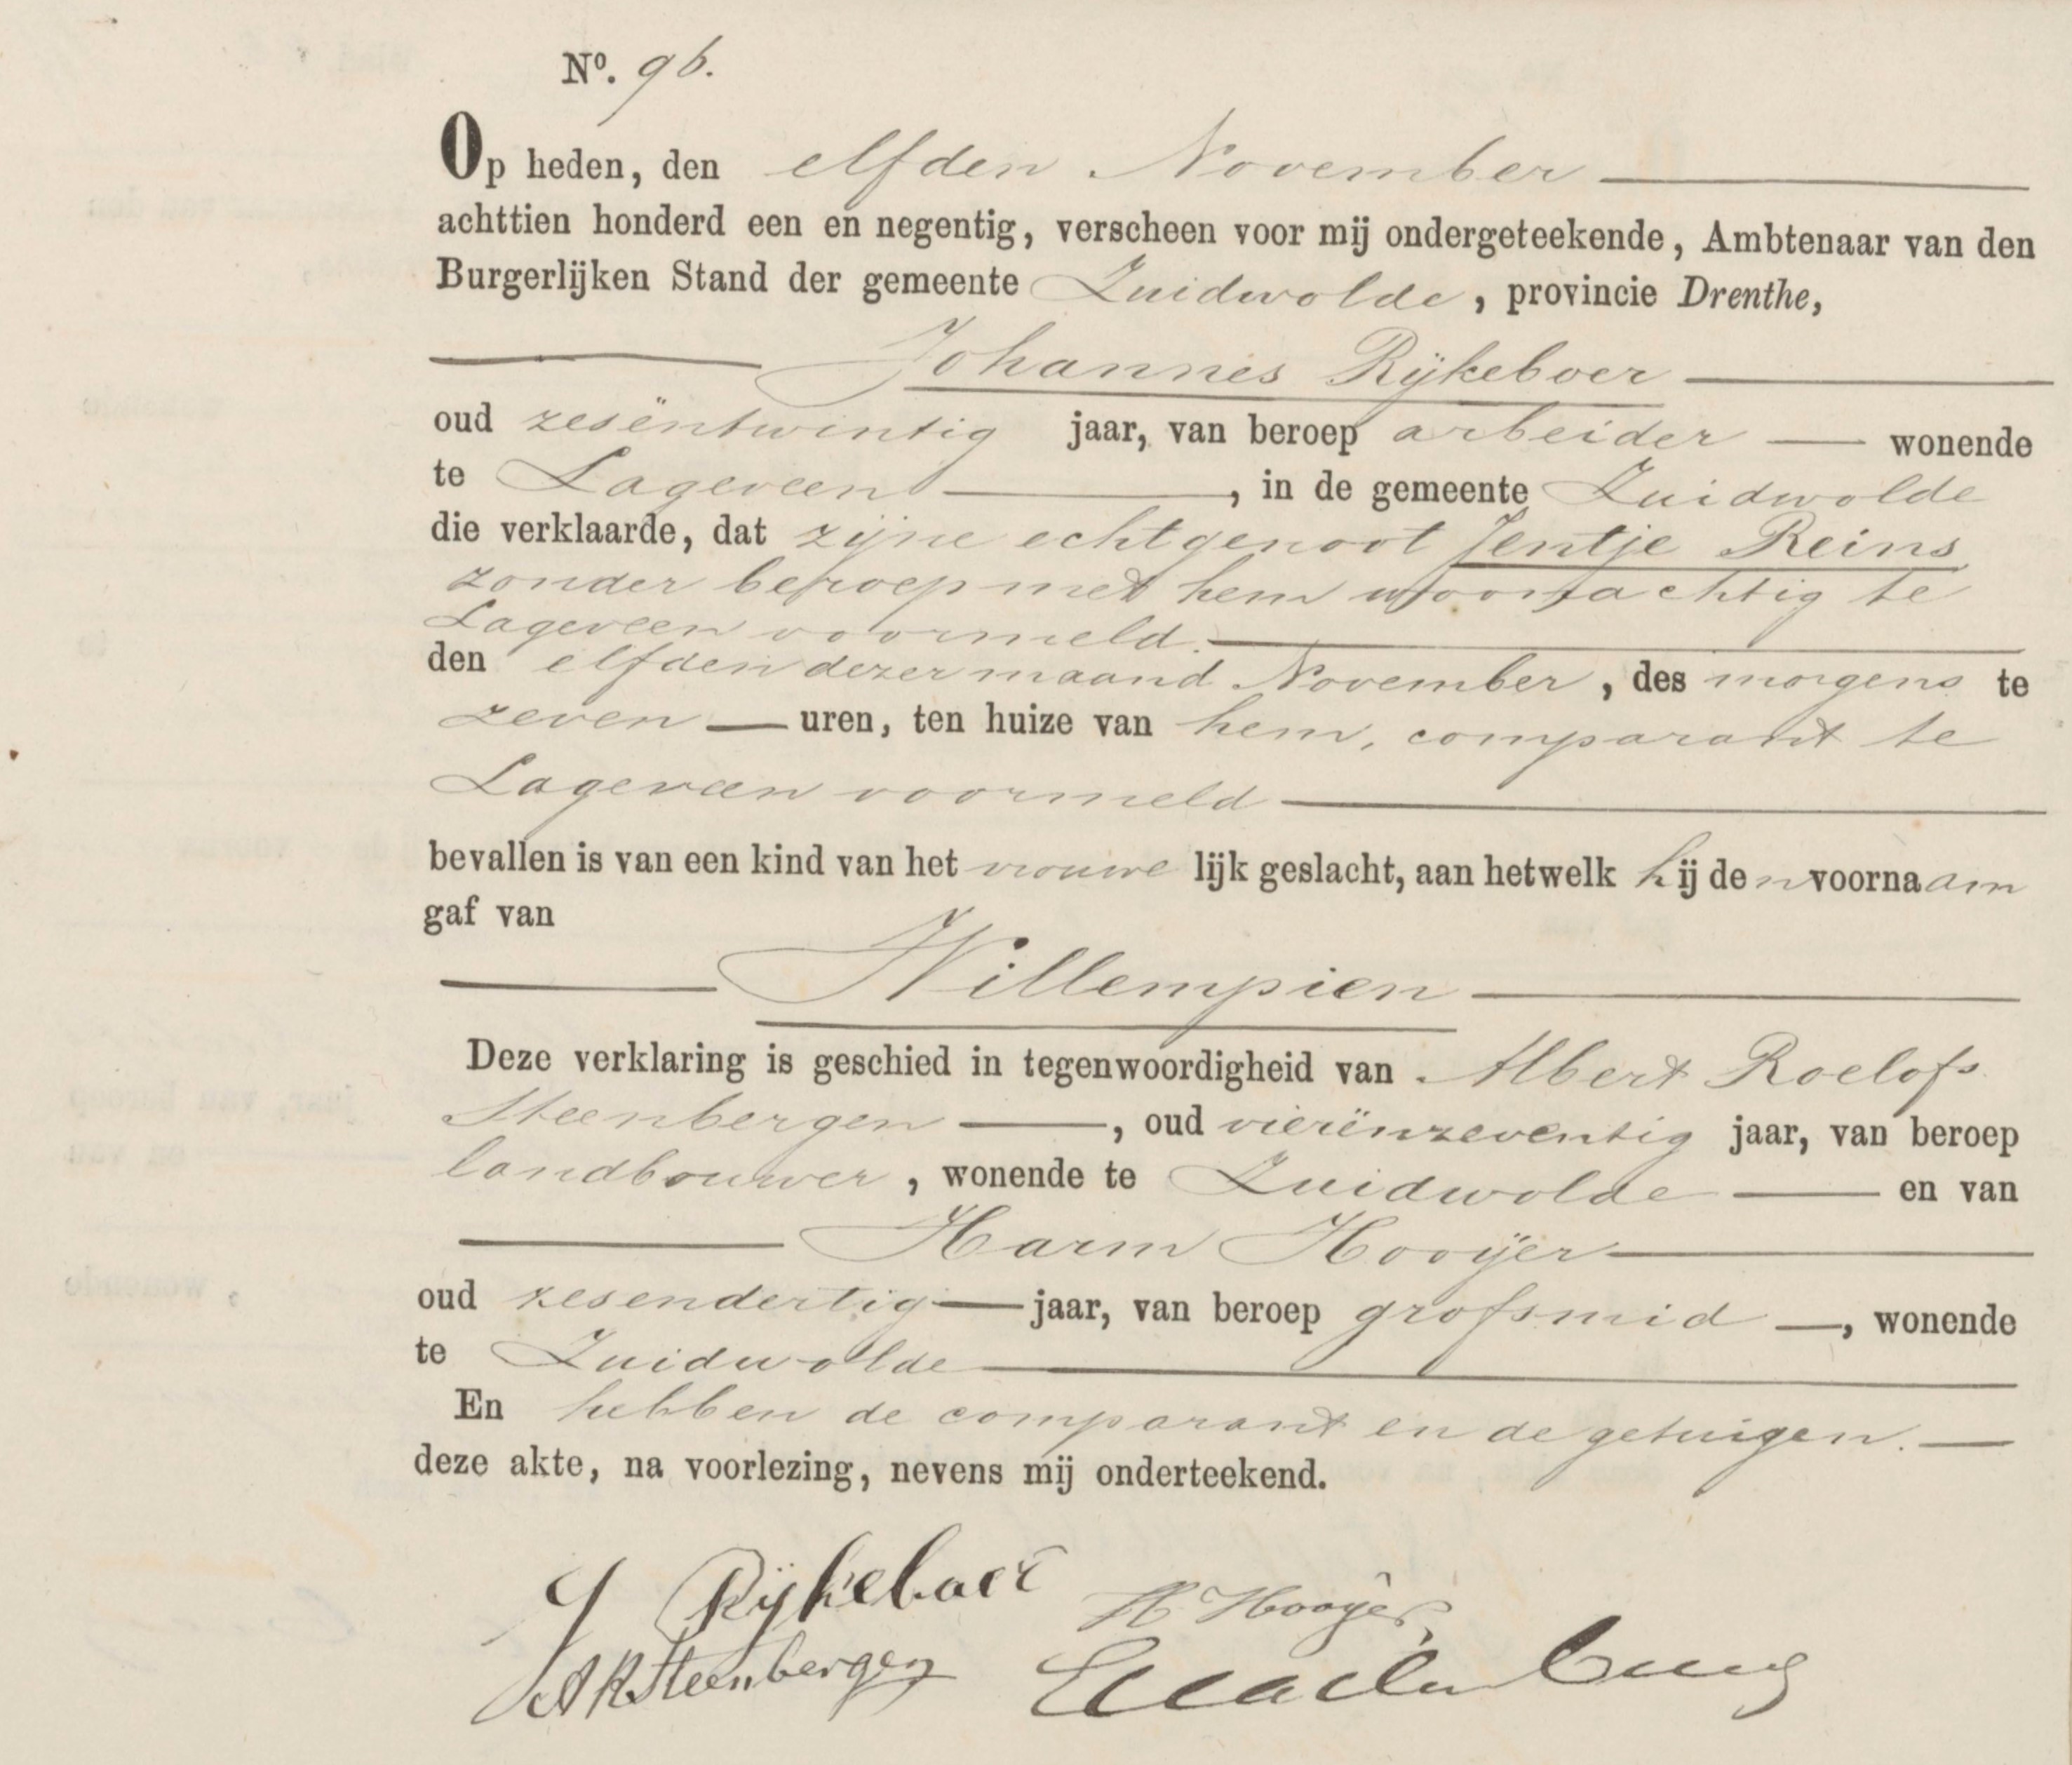 No. 96.
Op heden, den elfden November
achttien honderd een en negentig, verscheen voor mij ondergeteekende, Ambtenaar van den
Burgerlijken Stand der gemeente Zuidwolde, provincie Drenthe,
Johannes Rijkeboer
oud zesëntwintig jaar, van beroep arbeider wonende
te Lageveen, in de gemeente Zuidwolde
die verklaarde, dat zijne echtgenoot Jentje Reins
zonder beroep met hem woonachtig te
Lageveen voormeld.
den elfden dezer maand November, des morgens te
zeven uren, ten huize van hem, comparant te
Lageveen voormeld
bevallen is van een kind van het vrouwelijk geslacht, aan hetwelk hij den voornaam
gaf van
Willempien
Deze verklaring is geschied in tegenwoordigheid van Albert Roelofs
Steenbergen, oud vierënzeventig jaar, van beroep
landbouwer, wonende te Zuidwolde en van
Harm Hooijer
oud zesendertig jaar, van beroep grofsmid, wonende
te Zuidwolde
En hebben de comparant en de getuigen.
deze akte, na voorlezing, nevens mij onderteekend.
J Rijkeboer H Hooijer
AR Steenbergen